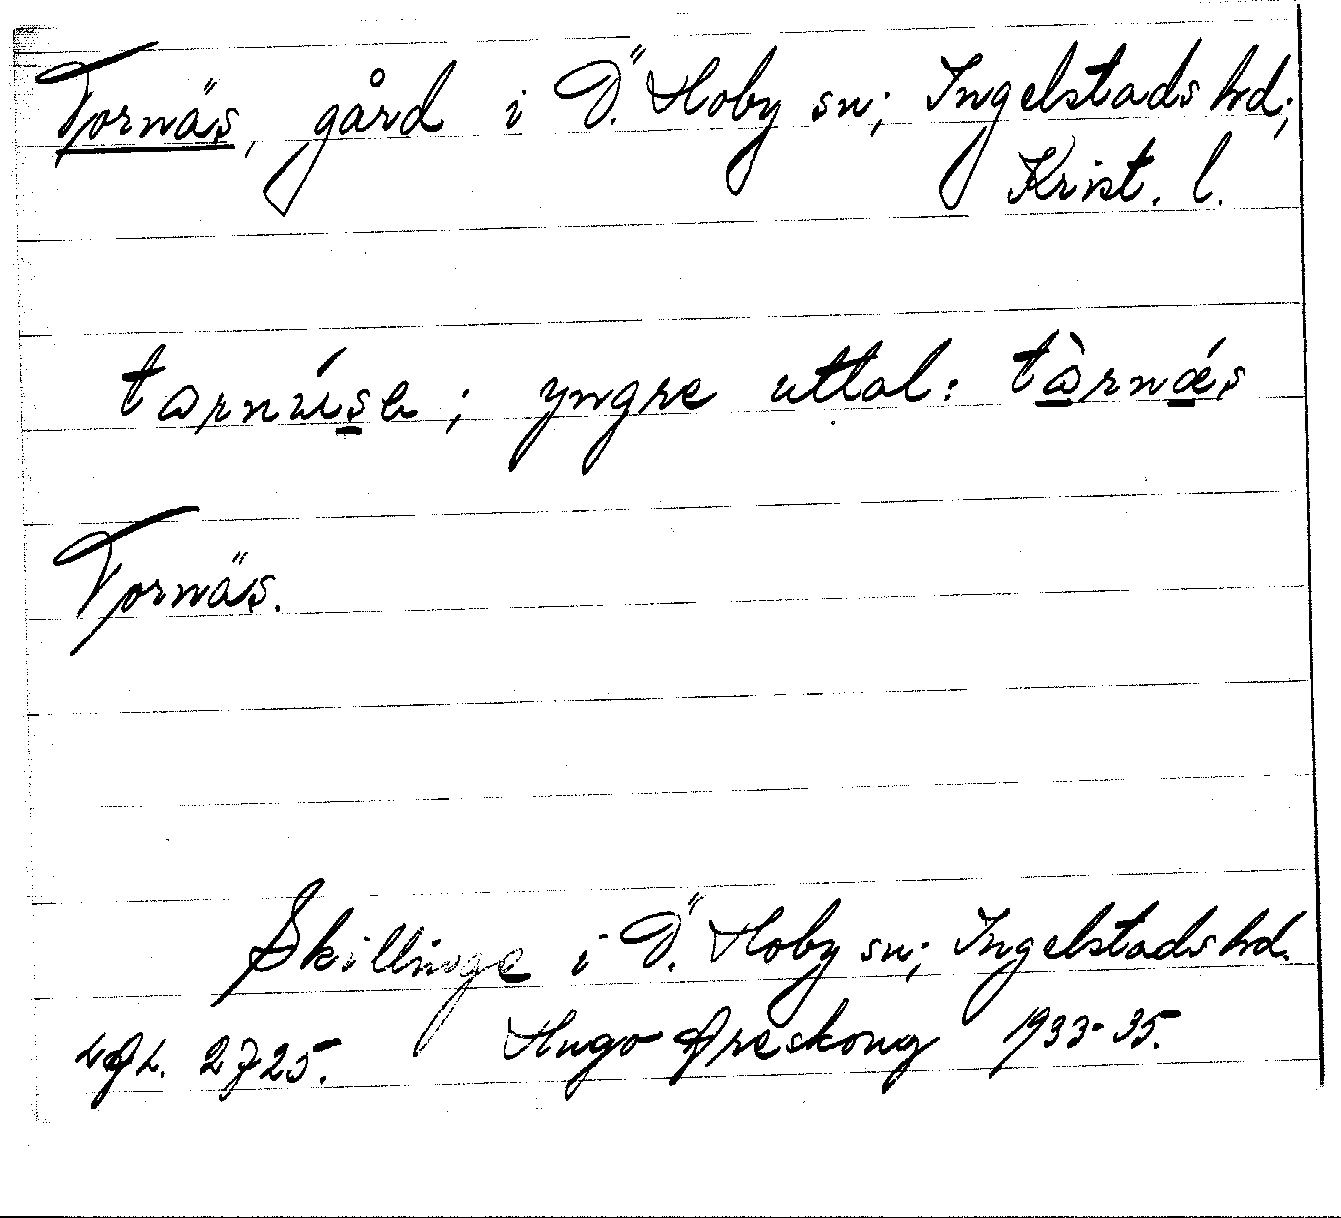 Tornäs, gård i Ö. Hoby sn; Ingelstads hd;
Krist. l.
yngre uttal: tàrnǽs
Tornäs.
Skillinge i Ö. Hoby sn; Ingelstads hd.
2725. Hugo Areskoug 1933-35.